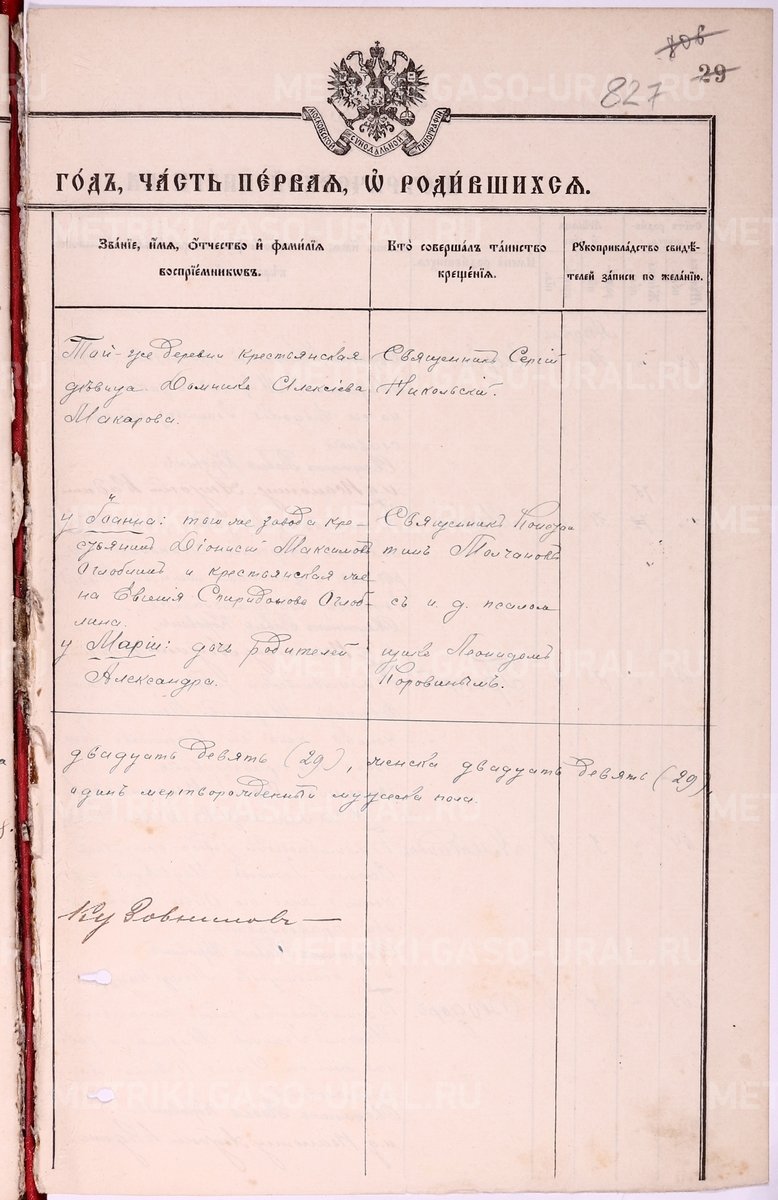 806
29
827
МОСКОВСКОЙ СУНОДАЛЬНОЙ ТИПОГРАФІИ
ГО́ДЪ, ЧА́СТЬ ПЕ́РВАЯ, Ѽ РОДИ́ВШИХСЯ.
Зва́нїе, и҆́мя, ѻ҆́тчество и҆ фами́лїя
воспрїе́мникѡвъ.
Кто̀ соверша́лъ та́инство
креще́нїя.
Рꙋкоприкла́дство свидѣ́-
телей за́писи по жела́нїю.
Той-же деревни крестьянская
дѣвица Домника Алексіева
Макарова.
Священникъ Сергій
Никольскій.
у Іоанна: того же завода кре-
стьянинъ Діонисій Максимовъ
Оглоблинъ и крестьянская же-
на Евгенія Спиридонова Оглоб-
лина.
у Маріи: дочь родителей
Александра.
Священникъ
тинъ Молчановъ
съ и. д. псалом
щика Леонидомъ
Коровинымъ.
двадцать девять (29), женска двадцать девять (29),
одинъ мертворожденный мужеска пола.
METRIKI.GASO-URAL.RU